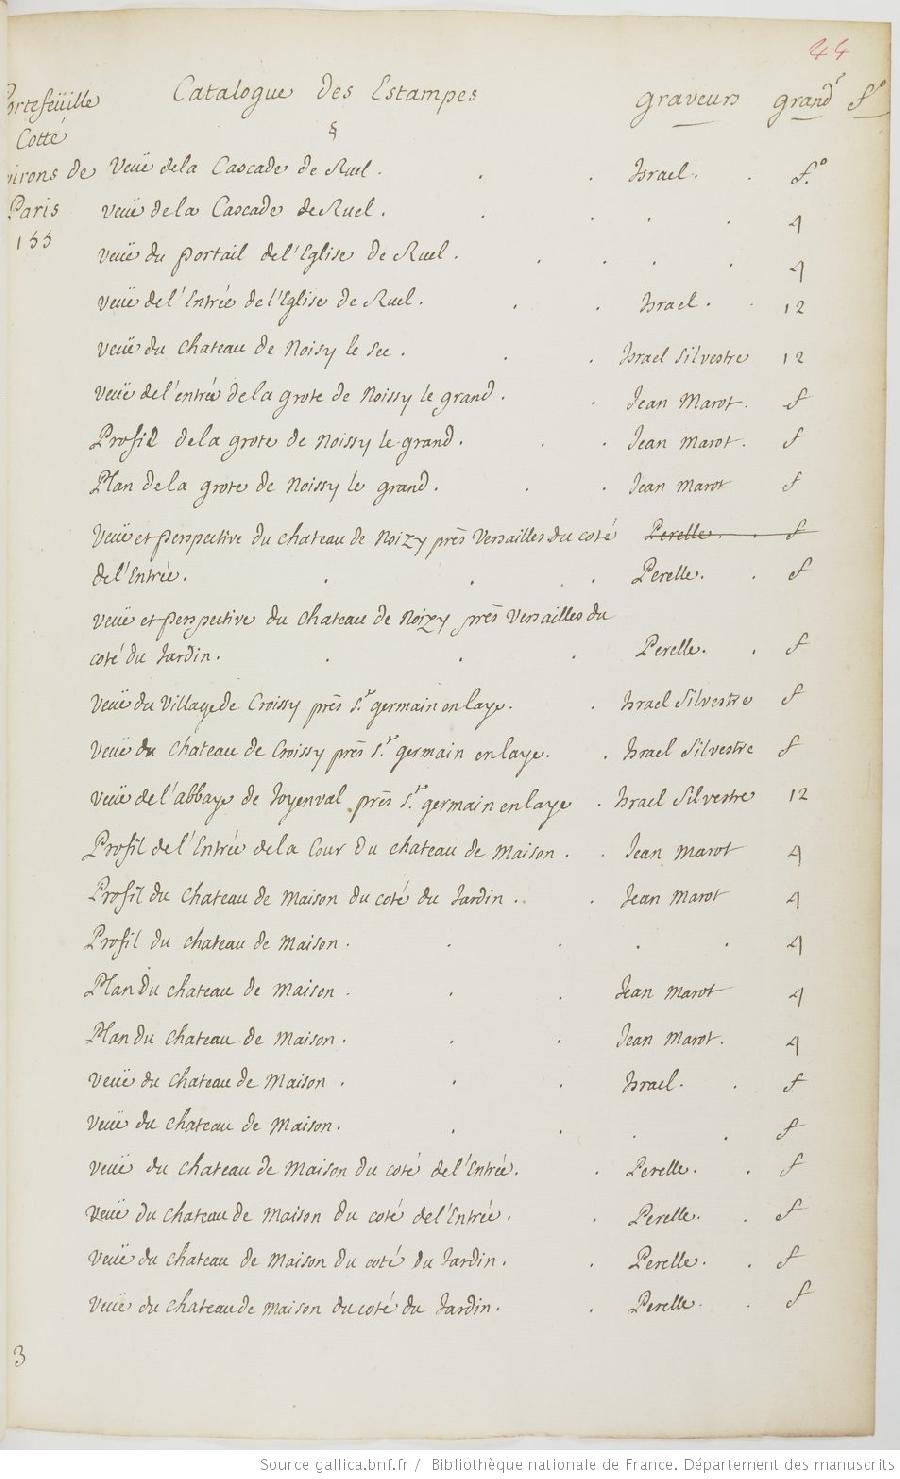 44
Portefeüille Catalogue Des Estampes graveurs grand.r f.o
Cotté §
virons de Veüe de la Cascade de Ruel. Israel. f.o
Paris veüe de la Cascade de Ruel. 4
155
veüe du portail de l'Eglise de Ruel. 4
veüe de l'Entrée de l'Eglise de Ruel. Israel. 12
veüe du chateau de Noisy le sec. Israel Silvestre 12
veüe de l'entrée de la grote de Noissy le grand. Jean Marot. f
Profil de la grote de Noissy le grand. Jean Marot. f
Plan de la grote de Noissy le grand. Jean Marot f
Veüe et perspective du chateau de Noizy près Versailles du coté Perelle. f
de l'Entrée. Perelle. f
veüe et perspective du chateau de Noizy près Versailles du
coté du Jardin. Perelle. f
Veüe du Village de Croissy près S.t germain en laye. Israel Silvestre f
Veüe du Chateau de Croissy près S.t germain en laye. Israel Silvestre f
Veüe de l'abbaye de Joyenval près S.t germain en laye Israel Silvestre 12
Profil de l'Entrée de la Cour du chateau de Maison. Jean Marot 4
Profil du chateau de Maison du coté du Jardin. Jean Marot 4
Profil du chateau de Maison. 4
Plan du chateau de Maison. Jean Marot 4
Plan du chateau de Maison. Jean Marot. 4
veüe du chateau de Maison. Israel. f
veüe du chateau de Maison. f
veüe du chateau de Maison du coté de l'Entrée. Perelle. f
veüe du chateau de Maison du coté de l'Entrée. Perelle. f
veüe du chateau de Maison du coté du Jardin. Perelle. f
veüe du chateau de Maison du coté du Jardin. Perelle. f
3
Source gallica.bnf.fr / Bibliothèque nationale de France. Département des manuscrits